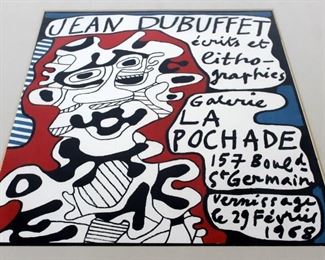 JEAN DUBUFFET
écrits et
litho-
graphies
Galerie
LA
POCHADE
157 Boul.d
St Germain
Vernissage
le 29 Février
1968